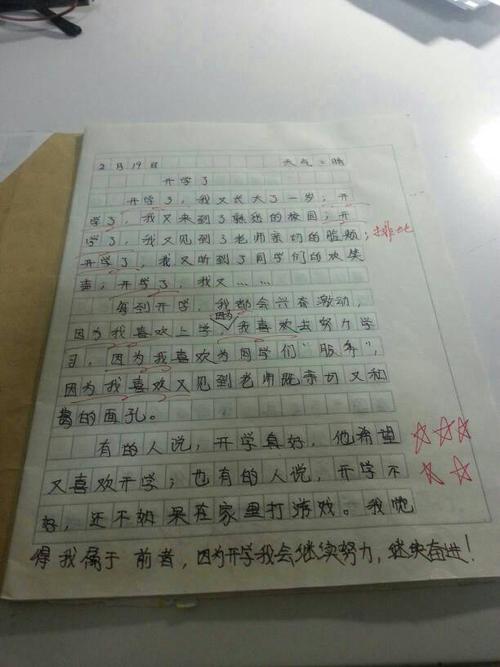 2月19日 天气：晴
开学了
开学了，我又长大了一岁；开
学了，我又来到了熟悉的校园；开
学了，我又见到了老师亲切的脸颊；排比
开学了，我又听到了同学们的欢笑
声；开学了，我又……
每到开学，我都会兴奋激动，
因为我喜欢上学，因为我喜欢去努力学
习，因为我喜欢为同学们“服务”，
因为我喜欢又见到老师既亲切又和
蔼的面孔。
有的人说，开学真好，他希望
又喜欢开学；也有的人说，开学不
好，还不如果在家里打游戏。我觉
得我属于前者，因为开学我会继续努力，继续奋进！